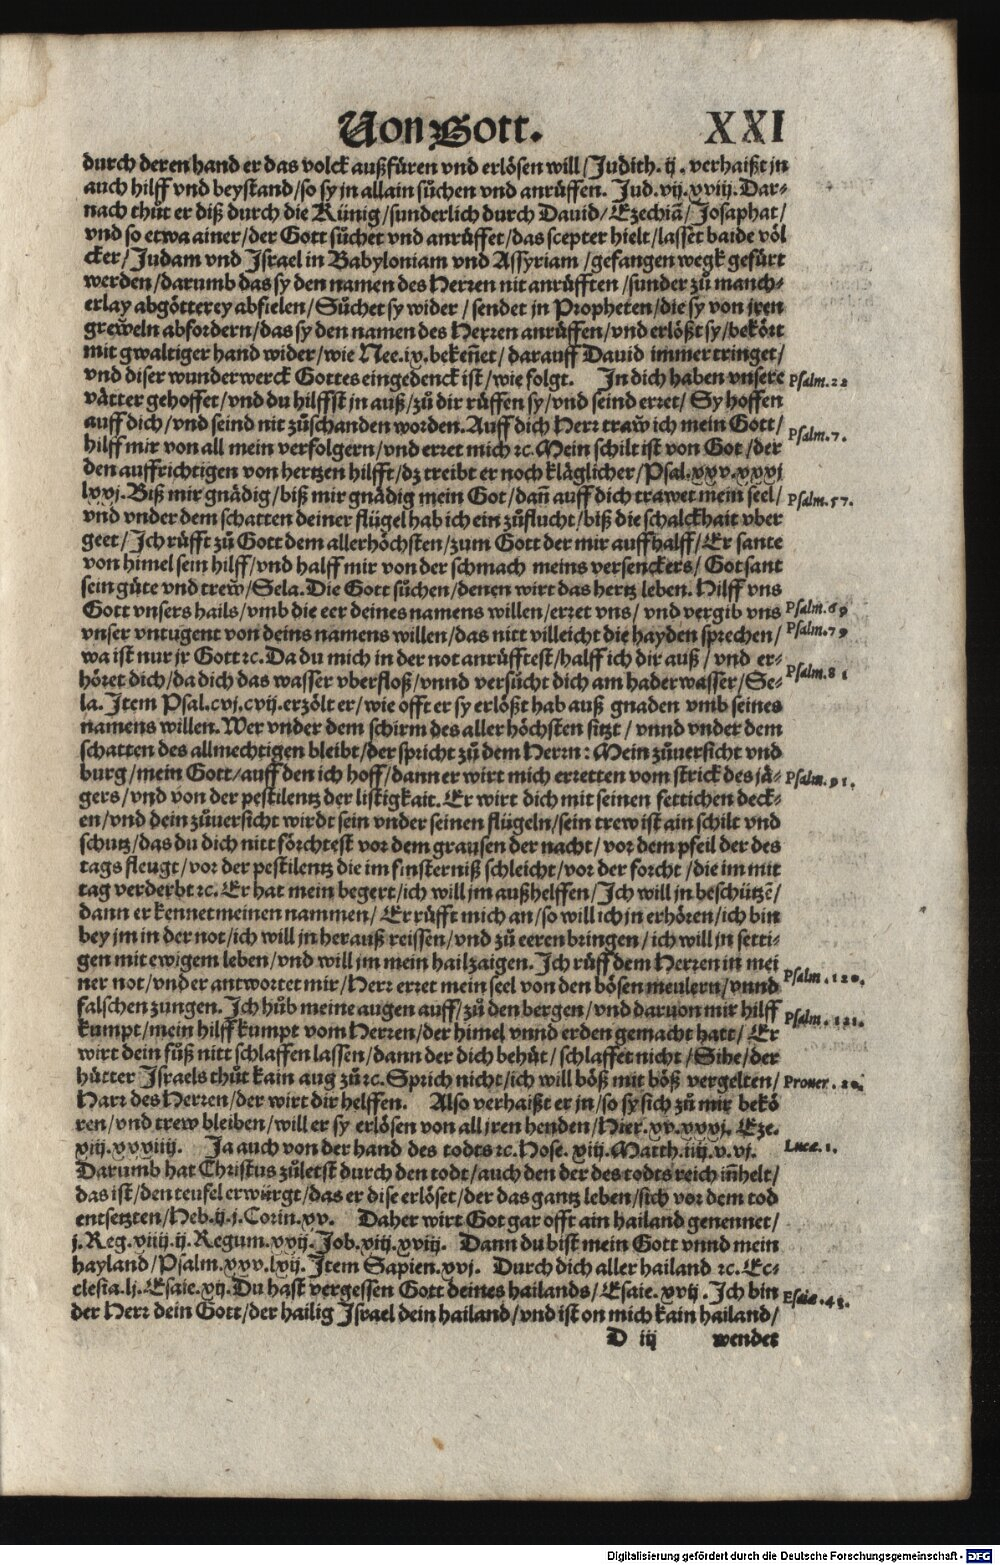 Von Gott. XXI
durch deren hand er das volck außfüren vnd erlösen will/Judith. ij. verhaißt jn
auch hilff vnd beystand/so sy jn allain sůchen vnd anrůffen. Jud. vij. xviij. Dar-
nach thůt er diß durch die Künig/sunderlich durch Dauid/Ezechiā/Josaphat/
vnd so etwa ainer/der Gott sůchet vnd anrůffet/das scepter hielt/lasset baide völ
cker/Judam vnd Jsrael in Babyloniam vnd Assyriam/gefangen wegk gefürt
werden/darumb das sy den namen des Herren nit anrůfften/sunder zů manch-
erlay abgötterey abfielen/Sůchet sy wider/sendet jn Propheten/die sy von jren
greweln abfordern/das sy den namen des Herren anrůffen/vnd erlößt sy/bekört
mit gwaltiger hand wider/wie Nee. ix. bekeñet/darauff Dauid immer tringet/
vnd diser wunderwerck Gottes eingedenck ist/wie folgt. In dich haben vnsere Psalm. 22
vätter gehoffet/vnd du hilffst jn auß/zů dir růffen sy/vnd seind erret/Sy hoffen
auff dich/vnd seind nit zůschanden worden. Auff dich Herr traw ich mein Gott/ Psalm. 7.
hilff mir von all mein verfolgern/vnd erret mich ꝛc. Mein schilt ist von Got/der
den auffrichtigen von hertzen hilfft/dz treibt er noch kläglicher/Psal. xxv. xxxj
lxxj. Biß mir gnädig/biß mir gnädig mein Got/dañ auff dich trawet mein seel/ Psalm. 57.
vnd vnder dem schatten deiner flügel hab ich ein zůflucht/biß die schalckhait vber
geet/Ich růfft zů Gott dem allerhöchsten/zum Gott der mir auffhalff/Er sante
von himel sein hilff/vnd halff mir von der schmach meins versenckers/Got sant
sein güte vnd trew/Sela. Die Gott sůchen/denen wirt das hertz leben. Hilff vns
Gott vnsers hails/vmb die eer deines namens willen/erret vns/vnd vergib vns Psalm. 69
vnser vntugent von deins namens willen/das nitt villeicht die hayden sprechen/ Psalm. 79
wa ist nur jr Gott ꝛc. Da du mich in der not anrůfftest/halff ich dir auß/vnd er-
höret dich/da dich das wasser vberfloß/vnnd versůcht dich am haderwasser/Se- Psalm. 81
la. Item Psal. cvj. cvij. erzölt er/wie offt er sy erlößt hab auß gnaden vmb seines
namens willen. Wer vnder dem schirm des aller höchsten sitzt/vnnd vnder dem
schatten des allmechtigen bleibt/der spricht zů dem Herrn: Mein zůuersicht vnd
burg/mein Gott/auff den ich hoff/dann er wirt mich erretten vom strick des jä- Psalm. 91.
gers/vnd von der pestilentz der listigkait. Er wirt dich mit seinen fettichen deck-
en/vnd dein zůuersicht wirdt sein vnder seinen flügeln/sein trew ist ain schilt vnd
schutz/das du dich nitt förchtest vor dem grausen der nacht/vor dem pfeil der des
tags fleugt/vor der pestilentz die im finsterniß schleicht/vor der forcht/die im mit
tag verderbt ꝛc. Er hat mein begert/ich will jm außhelffen/Ich will jn beschützē/
dann er kennet meinen nammen/Er růfft mich an/so will ich jn erhören/ich bin
bey jm in der not/ich will jn herauß reissen/vnd zů eeren bringen/ich will jn setti-
gen mit ewigem leben/vnd will jm mein hail zaigen. Ich růff dem Herren in mei
ner not/vnd er antwortet mir/Herr erret mein seel von den bösen meulern/vnnd Psalm. 120.
falschen zungen. Ich hůb meine augen auff/zů den bergen/vnd daruon mir hilff
kumpt/mein hilff kumpt vom Herren/der himel vnnd erden gemacht hatt/Er Psalm. 121.
wirt dein fůß nitt schlaffen lassen/dann der dich behüt/schlaffet nicht/Sihe/der
hütter Jsraels thůt kain aug zů ꝛc. Sprich nicht/ich will böß mit böß vergelten/ Prouer. 20.
Harr des Herren/der wirt dir helffen. Also verhaißt er jn/so sy sich zů mir bekö
ren/vnd trew bleiben/will er sy erlösen von all jren henden/Hier. xv. xxxj. Eze.
xiij. xxxiiij. Ja auch von der hand des todts ꝛc. Hose. xiij. Matth. iiij. v. vj. Luce. 1.
Darumb hat Christus zůletst durch den todt/auch den der des todts reich iñhelt/
das ist/den teufel erwürgt/das er dise erlöset/der das gantz leben/sich vor dem tod
entsetzten/Heb. ij. j. Corin. xv. Daher wirt Got gar offt ain hailand genennet/
j. Reg. xiiij. ij. Regum. xxij. Job. xiij. xviij. Dann du bist mein Gott vnnd mein
hayland/Psalm. xxv. lxij. Item Sapien. xvj. Durch dich aller hailand ꝛc. Ec-
clesia. lj. Esaie. xij. Du hast vergessen Gott deines hailands/Esaie. xvij. Ich bin Esaie. 43.
der Herr dein Gott/der hailig Jsrael dein hailand/vnd ist on mich kain hailand/
D iij wendet
Digitalisierung gefördert durch die Deutsche Forschungsgemeinschaft - DFG